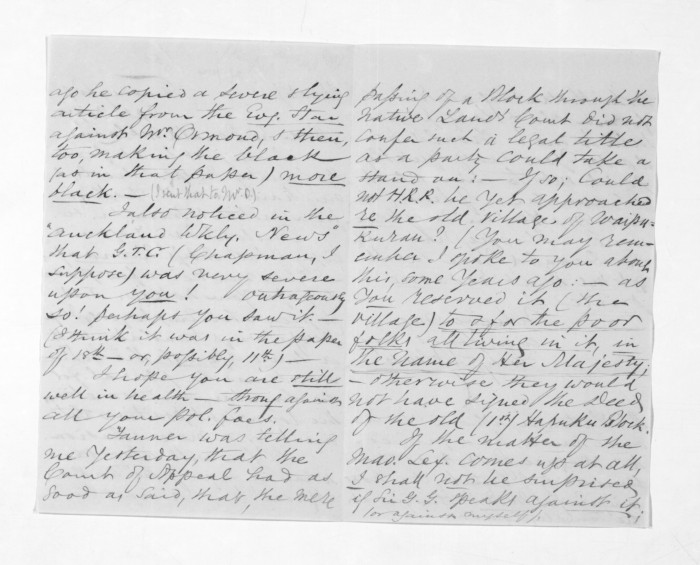 ago he copied a severe & lying
article from the Evg. Star
against Mr. Ormond, & then,
too, making the black
(as in that paper) more
black. — (I sent that to Mr. O.)
I also noticed in the
"Auckland Wkly. News"
that G.T.C. (Chapman, I
suppose) was very severe
upon you! outrageously
so! perhaps you saw it. —
(I think it was in the paper
of 18th — or, possibly, 11th.) —
I hope you are still
well in health — strong against
all your pol. foes.
Tanner was telling
me yesterday, that the
Court of Appeal had as
good as said, that, the mere
passing of a Block through the
Native Lands Court did not
confer such a legal title
as a party could take a
stand on: — If so; Could
not H.R.R. be yet approached
re the old Village of Waipu-
kurau? (You may rem-
ember I spoke to you about
this, some years ago: — as
You reserved it (the
village) to & for the poor
folks all living in it, in
the name of Her Majesty;
— otherwise they would
not have signed the Deed
of the old (1st) Hapuku Block.
If the matter of the
Mao. Lex. comes up at all,
I shall not be surprised
if Sir G. G. speaks against it;
(or against myself).